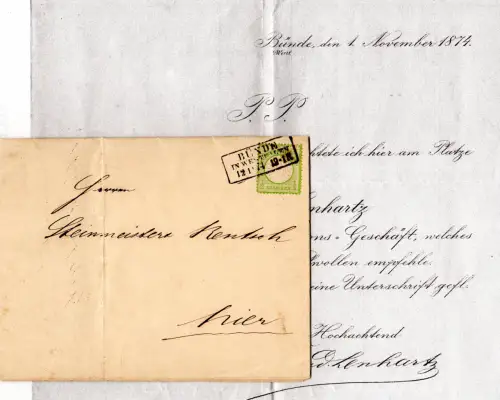 Bünde, den 1. November 1874.
West
P. P.
htete ich hier am Platze
enhartz
ons-Geschäft, welches
lwollen empfehle.
eine Unterschrift gefl.
Hochachtend
Ed. Lenhartz
BÜNDE
IN WESTFALEN
12 11 74
Herren
Steinmeister &
hier